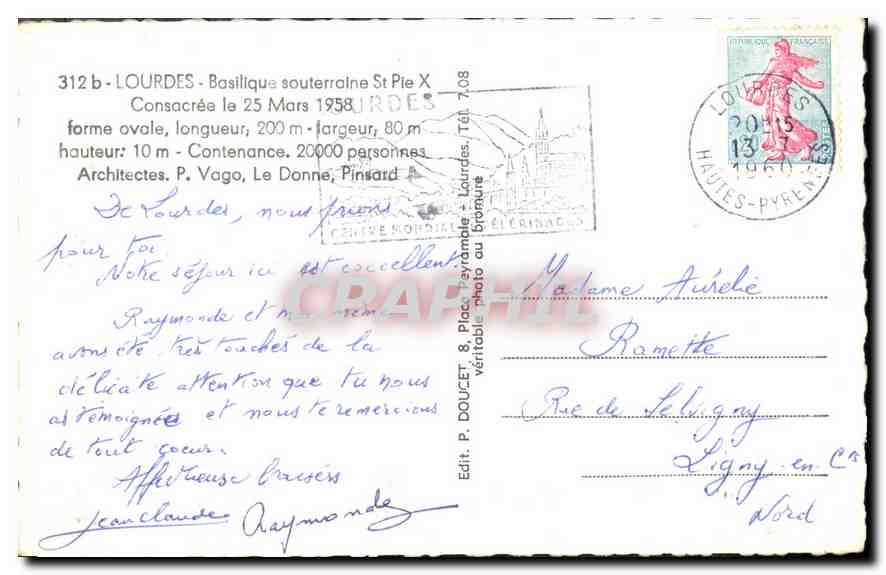 312 b - LOURDES - Basilique souterraine St Pie X
Consacrée le 25 Mars 1958
forme ovale, longueur; 200 m - largeur; 80 m
hauteur: 10 m - Contenance. 20000 personnes
Architectes. P. Vago, Le Donne, Pinsard
De Lourdes, nous prions
pour toi
Notre séjour ici est excellent
Raymonde et moi même
avons été très touchés de la
délicate attention que tu nous
as témoignée et nous te remercions
de tout coeur.
Affectueux baisers
Jean Claude Raymonde
Edit. P. DOUCET, 8, Place Peyramale - Lourdes. Tél. 7.08
véritable photo au bromure
LOURDES
CENTRE MONDIAL PÈLERINAGES
REPUBLIQUE FRANÇAISE
LOURDES
20H15
13 - 7
1960
HAUTES-PYRENEES
Madame Aurélie
Ramette
Rue de Selvigny
Ligny-en-Cis
Nord
CRAPHIL